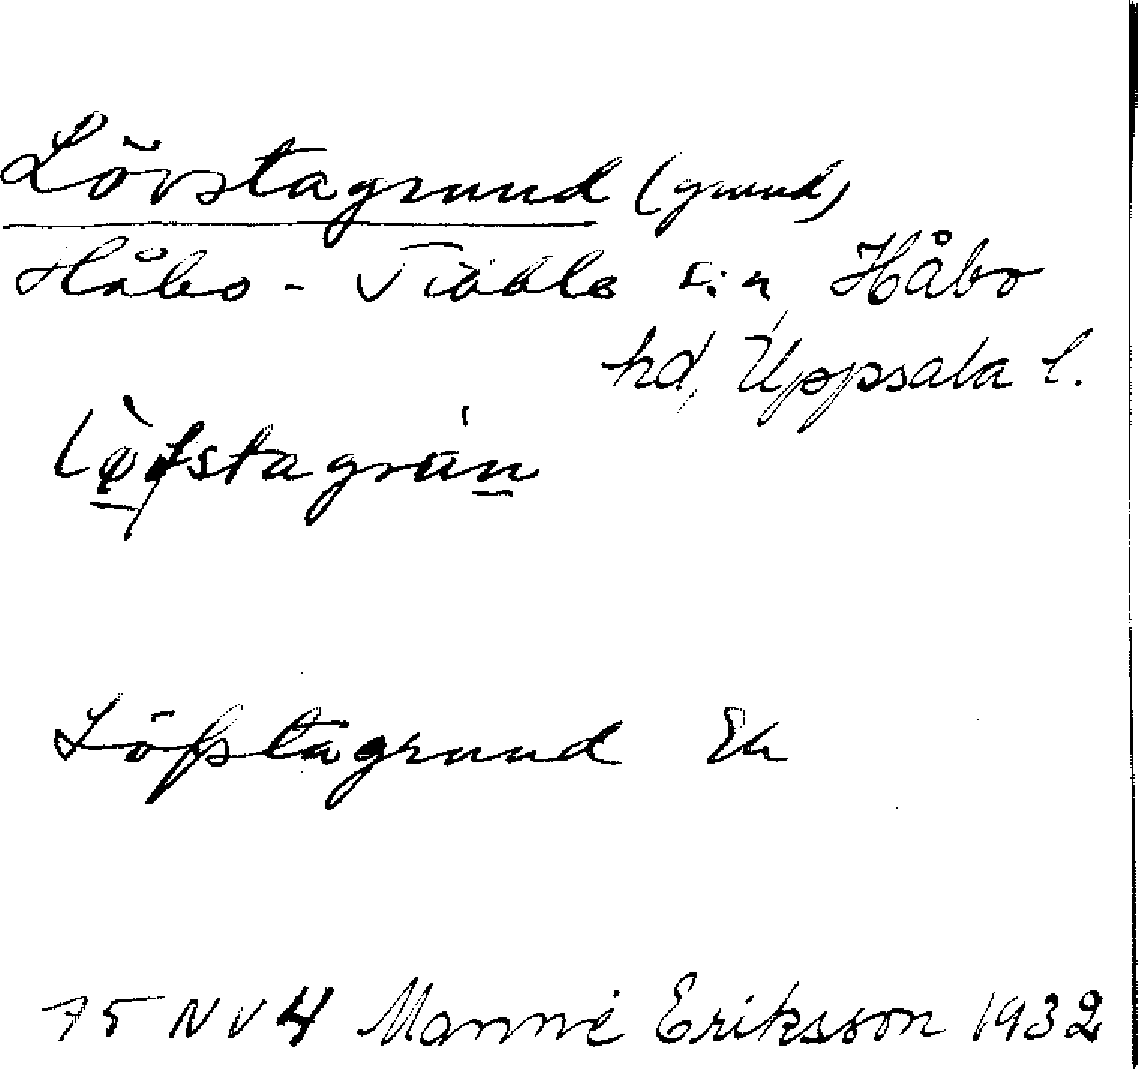 Lövstagrund (grund)
Håbo-Tibble sn, Håbo
hd, Uppsala l.
Löfstagrund Ek
75 NV 4 Manne Eriksson 1932